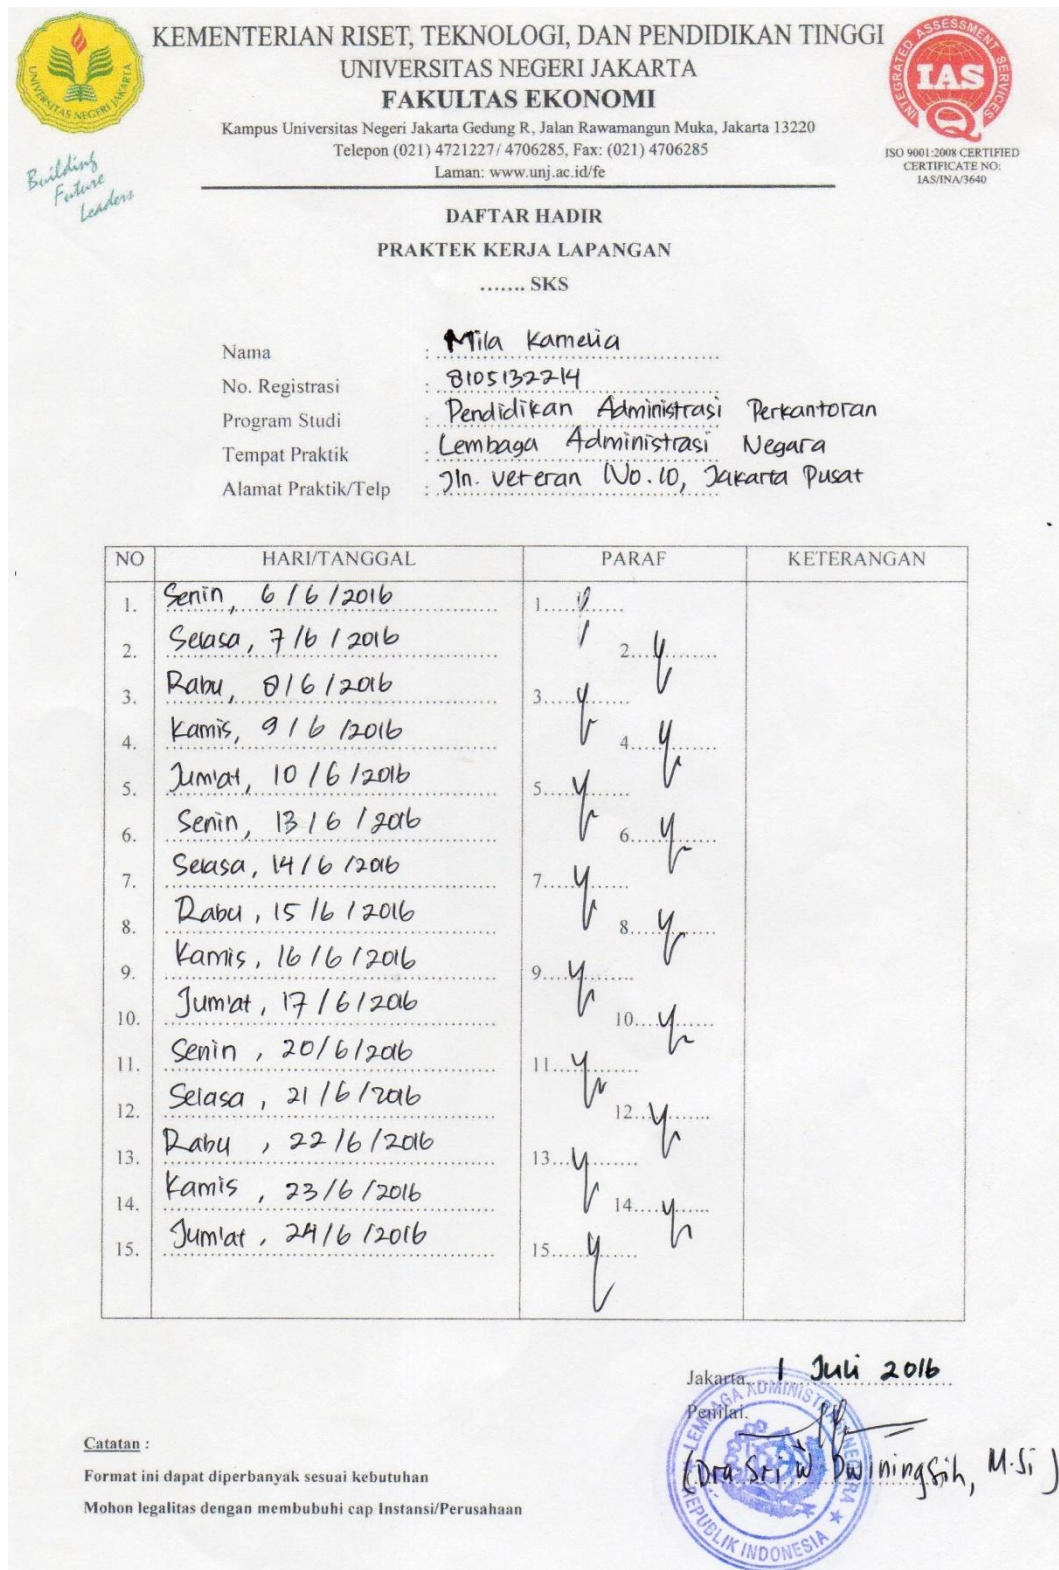 KEMENTERIAN RISET, TEKNOLOGI, DAN PENDIDIKAN TINGGI
UNIVERSITAS NEGERI JAKARTA
FAKULTAS EKONOMI
Kampus Universitas Negeri Jakarta Gedung R, Jalan Rawamangun Muka, Jakarta 13220
Telepon (021) 4721227/ 4706285, Fax: (021) 4706285
Laman: www.unj.ac.id/fe
UNIVERSITAS NEGERI JAKARTA
Building
Future
Leaders
INTEGRATED ASSESSMENT SERVICES
IAS
ISO 9001:2008 CERTIFIED
CERTIFICATE NO:
IAS/INA/3640
DAFTAR HADIR
PRAKTEK KERJA LAPANGAN
....... SKS
Nama : Mila Kamelia
No. Registrasi : 8105132214
Program Studi : Pendidikan Administrasi Perkantoran
Tempat Praktik : Lembaga Administrasi Negara
Alamat Praktik/Telp : Jln. Veteran No.10, Jakarta Pusat
NO HARI/TANGGAL PARAF KETERANGAN
1. Senin, 6/6/2016 1.
2. Selasa, 7/6/2016 2.
3. Rabu, 8/6/2016 3.
4. Kamis, 9/6/2016 4.
5. Jum'at, 10/6/2016 5.
6. Senin, 13/6/2016 6.
7. Selasa, 14/6/2016 7.
8. Rabu, 15/6/2016 8.
9. Kamis, 16/6/2016 9.
10. Jum'at, 17/6/2016 10.
11. Senin, 20/6/2016 11.
12. Selasa, 21/6/2016 12.
13. Rabu, 22/6/2016 13.
14. Kamis, 23/6/2016 14.
15. Jum'at, 24/6/2016 15.
Jakarta, 1 Juli 2016
Penilai,
(Dra Sri W Dwiningsih, M.Si)
LEMBAGA ADMINISTRASI NEGARA
REPUBLIK INDONESIA
Catatan :
Format ini dapat diperbanyak sesuai kebutuhan
Mohon legalitas dengan membubuhi cap Instansi/Perusahaan